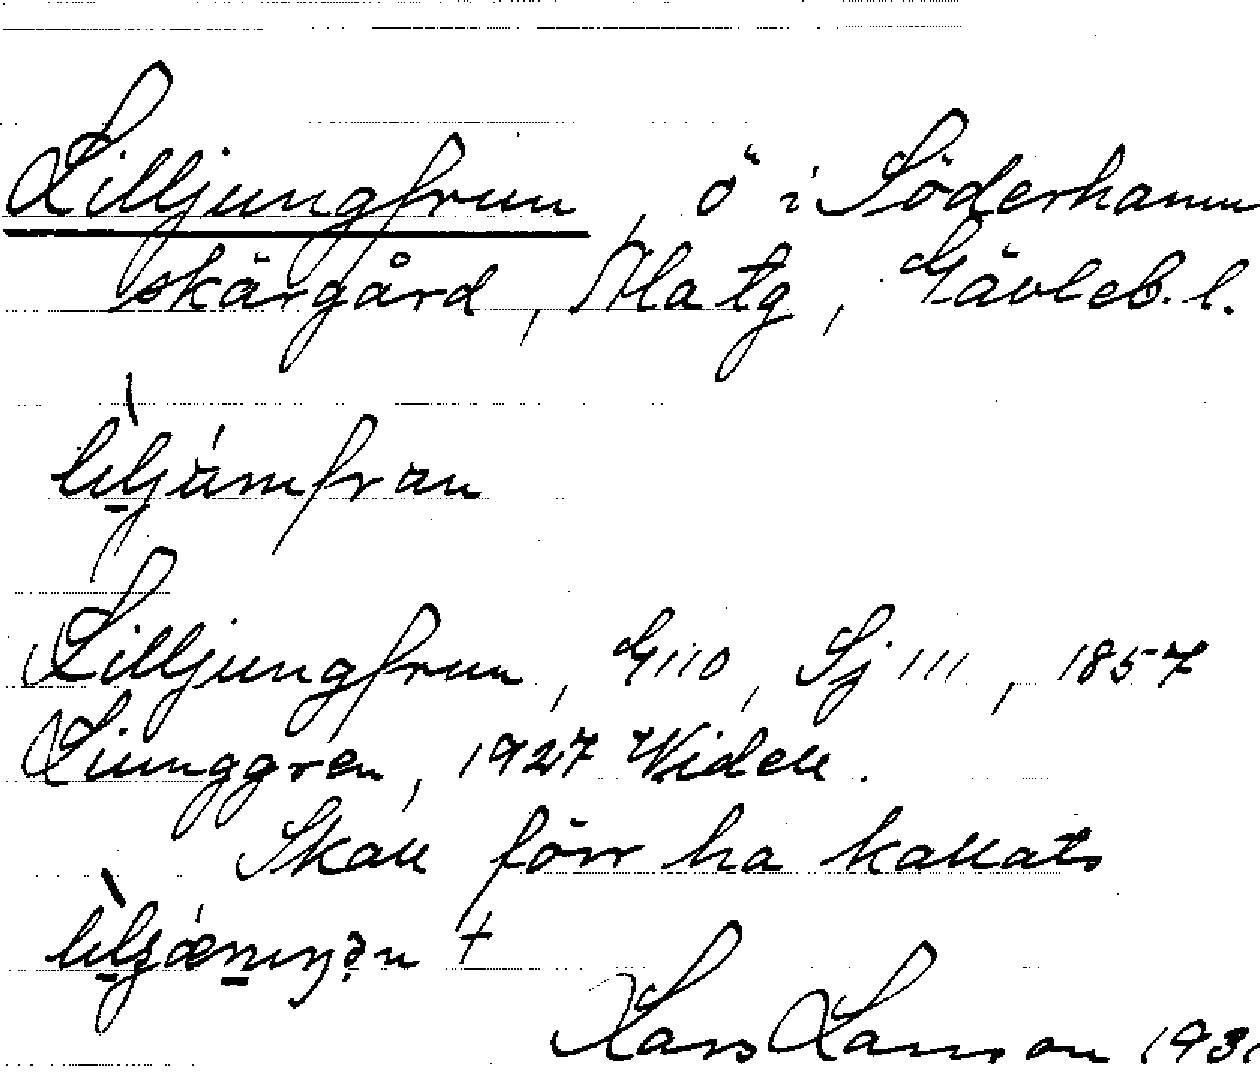 Lilljungfrun, ö i Söderhamn
skärgård, Ala tg, Gävleb. l.
liljúmfran
Lilljungfrun, G110, Sj 111, 1857
Ljunggren, 1927 Widell.
Skall förr ha kallats
†
Lars Larsson